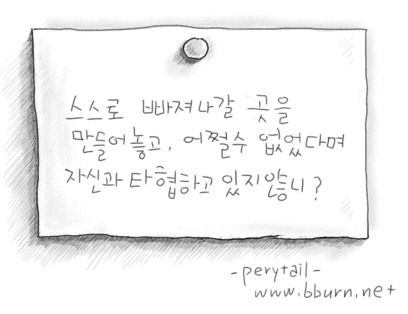 스스로 빠져나갈 곳을
만들어놓고, 어쩔수 없었다며
자신과 타협하고 있지않니?
-perytail-
www.bburn.net